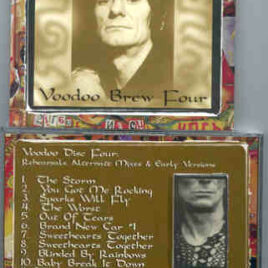 Voodoo Brew Four
Voodoo Disc Four
Rehearsals, Alternate Mixes & Early Versions
1. The Storm
2. You Got Me Rocking
3. Sparks Will Fly
4. The Worst
5. Out Of Tears
6. Brand New Car #1
7. Sweethearts Together
8. Sweethearts Together
9. Blinded By Rainbows
10. Baby Break It Down